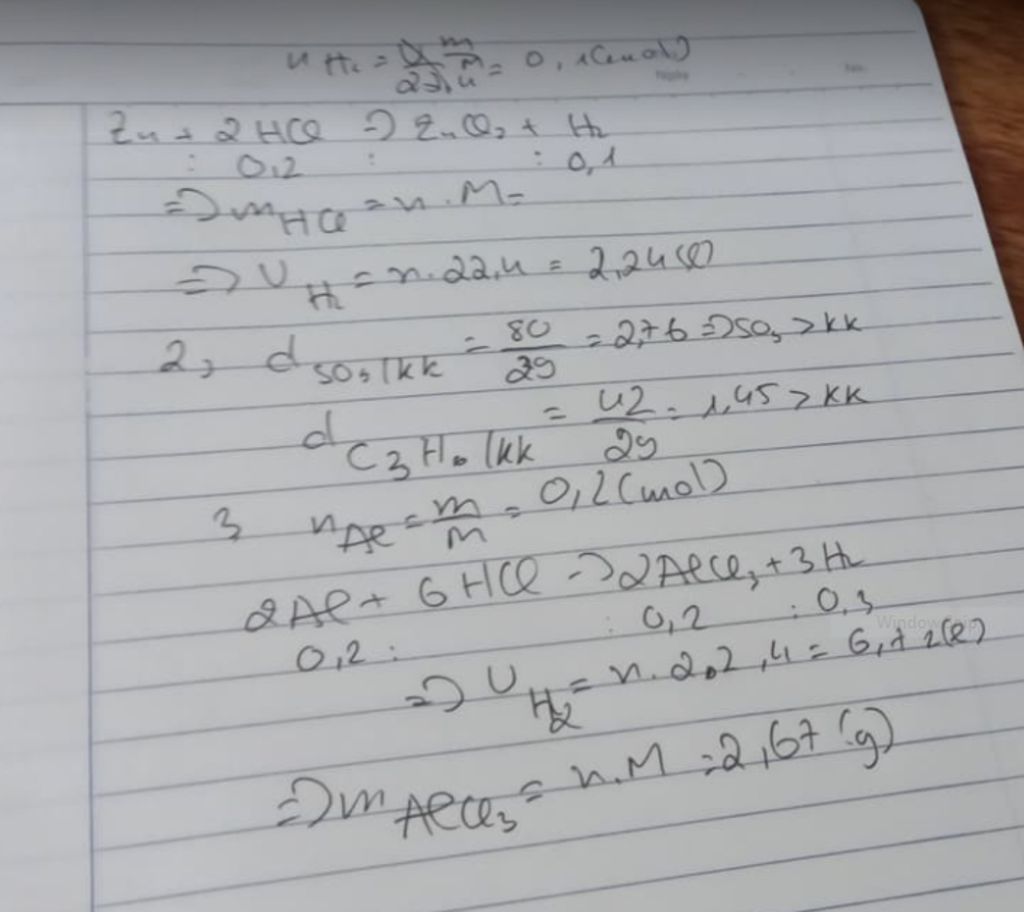 n H₂ = m/M = 0,1(mol)
22,4
Zn + 2HCl => ZnCl₂ + H₂
: 0,2 : : 0,1
=> m HCl = n.M=
=> V H₂ = n.22,4 = 2,24(l)
2, d SO₃/kk = 80/29 = 2,76 => SO₃ > kk
d C₃H₆/kk = 42/29 = 1,45 > kk
3 n Al = m/M = 0,2(mol)
2Al + 6HCl -> 2AlCl₃ + 3H₂
0,2 : : 0,2 : 0,3
=> V H₂ = n.22,4 = 6,72(l)
=> m AlCl₃ = n.M = 2,67(g)